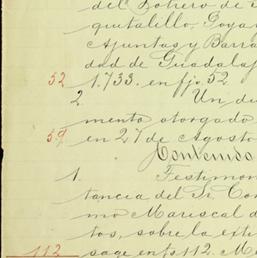 del Potrero de S
quitalillo, Goya
Ajuntas y Barra
dad de Guadalaj
52 1.733. en fjs. 52
2. Un du
mento otorgado
59 en 27 de Agosto
Contenido
1. Testimon
tancia del Sr. Con
mo Mariscal d
tos, sobre la exte
112 sage en fs 112. M